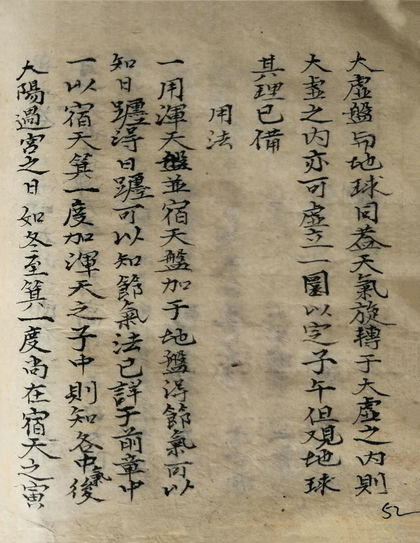 大虛盤與地球同葢天氣旋轉于大虛之內則
大虛之內亦可虛立一圈以定子午但觀地球
其理已備
用法
一用渾天盤並宿天盤加于地盤淂節氣可以
知日躔淂日躔可以知節氣法已詳于前章中
一以宿天箕一度加渾天之子中則知各中氣後
太陽過宮之日如冬至箕一度尚在宿天之寅
52